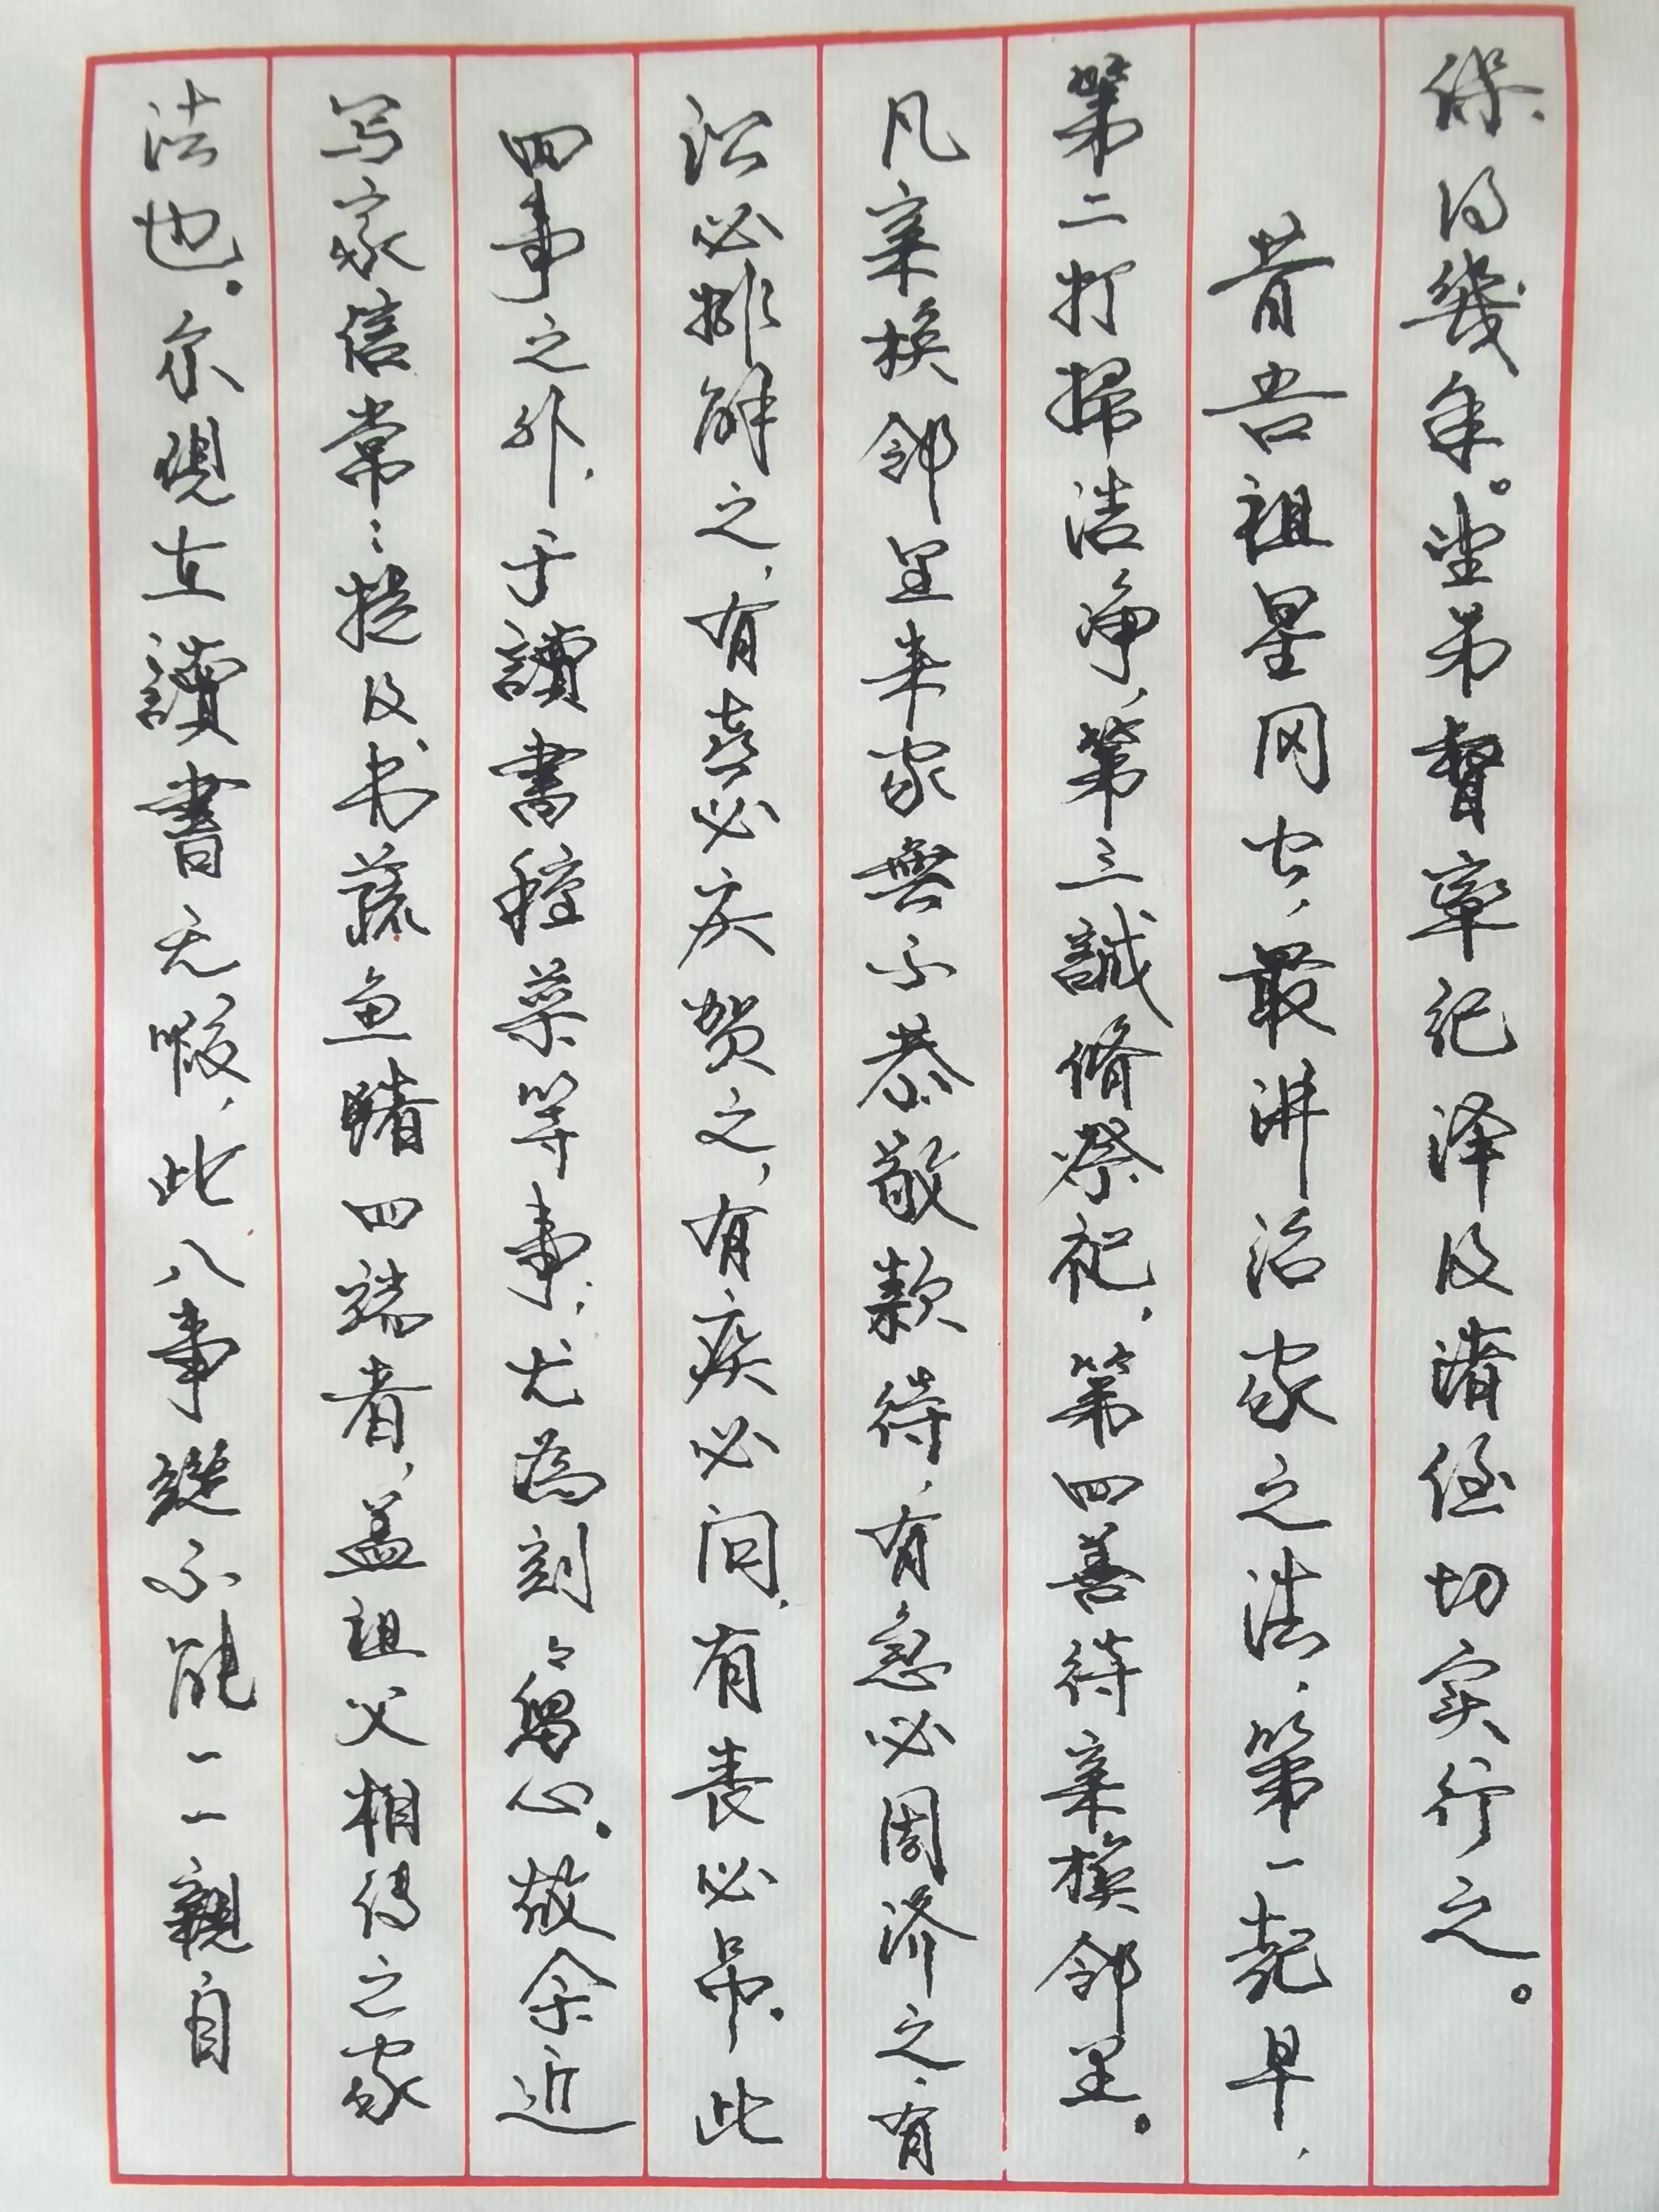 保得幾年。望弟督率纪泽及诸侄切实行之。
昔吾祖星冈公，最讲治家之法，第一起早，
第二打掃洁净，第三誠脩祭祀，第四善待亲族鄰里。
凡亲族鄰里来家，無不恭敬款待，有急必周济之，有
讼必排解之，有喜必庆贺之，有疾必问，有丧必吊。此
四事之外，于讀書種菜等事，尤為刻刻留心。故余近
写家信常常提及书蔬鱼豬四端者，盖祖父相传之家
法也。尔現在讀書无暇，此八事縱不能一一親自